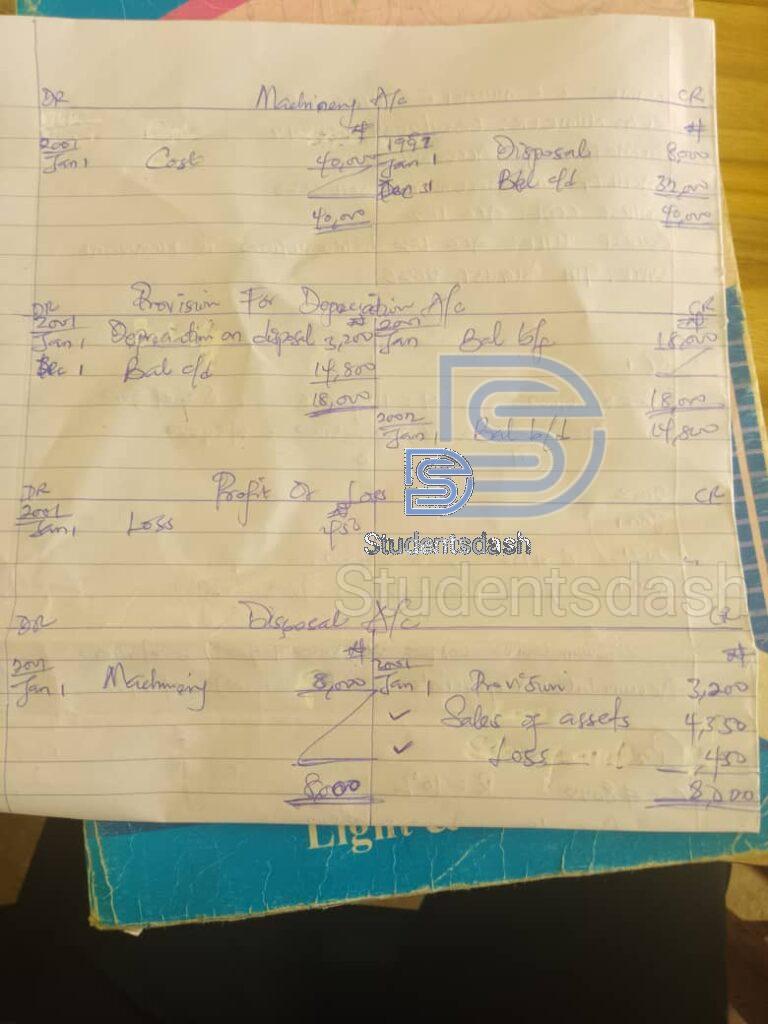 DR Machinery A/c CR
₦ ₦
2001 1997
Jan 1 Cost 40,000 Jan 1 Disposal 8,000
Dec 31 Bal c/d 32,000
40,000 40,000
DR Provision For Depreciation A/c CR
2001 ₦ 2001 ₦
Jan 1 Depreciation on disposal 3,200 Jan Bal b/f 18,000
Dec 1 Bal c/d 14,800
18,000 18,000
2002
Jan 1 Bal b/d 14,800
DR Profit Or Loss CR
2001 ₦
Jan 1 Loss 450
Studentsdash
Studentsdash
DR Disposal A/c CR
2001 ₦ 2001 ₦
Jan 1 Machinery 8,000 Jan 1 Provision 3,200
Sales of assets 4,350
Loss 450
8,000 8,000
Light